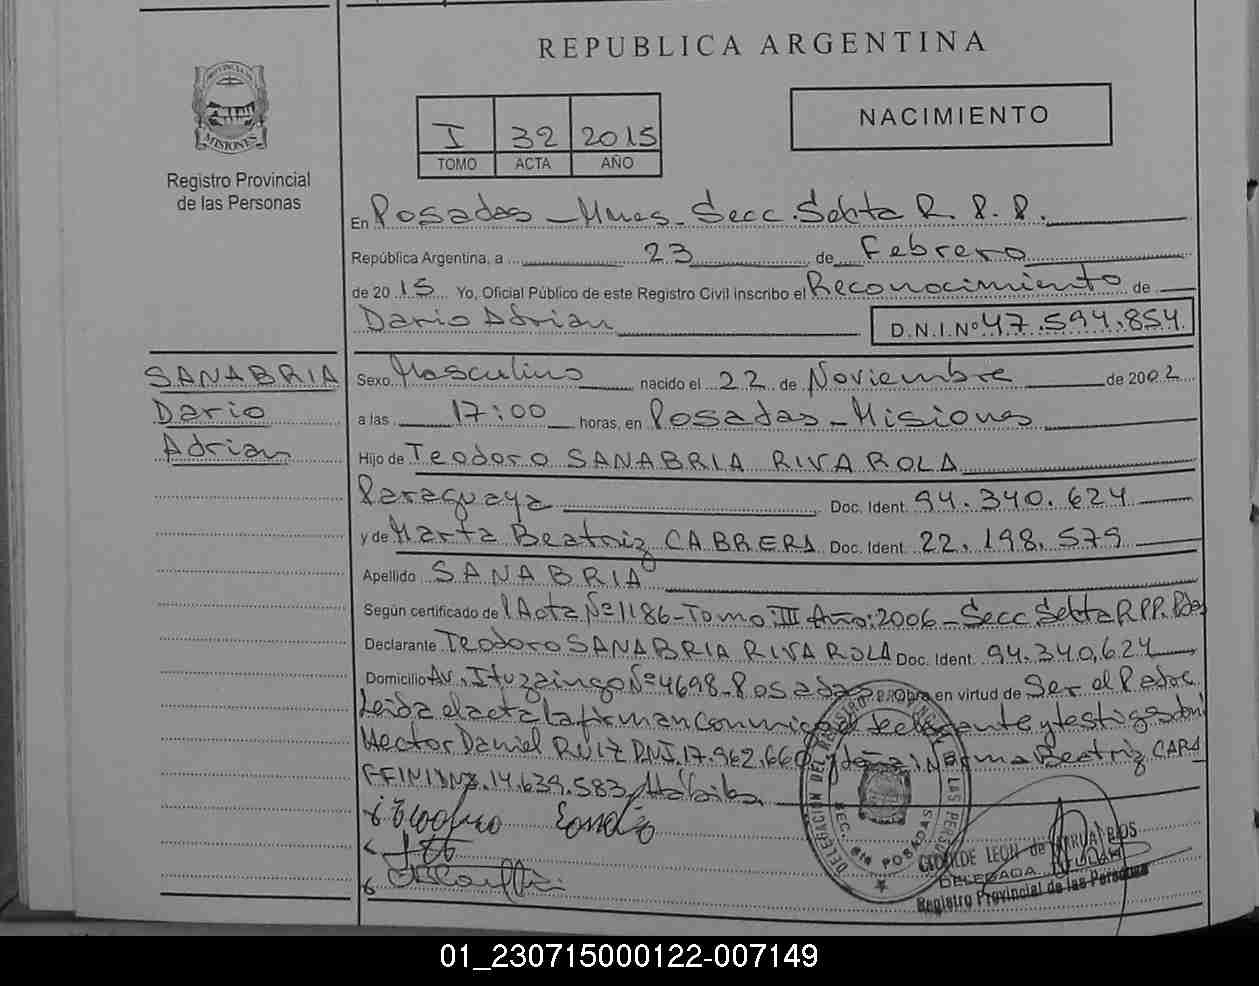 REPUBLICA ARGENTINA
PROVINCIA DE
MISIONES
Registro Provincial
de las Personas
I 32 2015
TOMO ACTA AÑO
NACIMIENTO
En Posadas - Mnes - Secc. Sexta R. P. P.
República Argentina, a 23 de Febrero
de 2015 Yo, Oficial Público de este Registro Civil inscribo el Reconocimiento de
Dario Adrian D.N.I.Nº 47.594.854
SANABRIA
Dario
Adrian
Sexo Masculino nacido el 22 de Noviembre de 2002
a las 17:00 horas, en Posadas - Misiones
Hijo de Teodoro SANABRIA RIVAROLA
Paraguaya Doc. Ident. 94.340.624
y de Marta Beatriz CABRERA Doc. Ident. 22.198.579
Apellido SANABRIA
Según certificado de l Acta Nº 1186 - Tomo: III Año: 2006 - Secc Sexta R.PP. Pdas
Declarante Teodoro SANABRIA RIVAROLA Doc. Ident. 94.340.624
Domicilio Av. Ituzaingo Nº 4698 - Posadas Obra en virtud de Ser el Padre
Leida el acta la firman conmigo el declarante y testigos don
Hector Daniel RUIZ DNI. 17.962.660 y doña: Norma Beatriz CARA
FFINI DNI. 14.639.583
DELEGACION DEL REGISTRO PROVINCIAL DE LAS PERSONAS
SEC. 6ta POSADAS
CLOTILDE LEON de
DELEGADA TITULAR
Registro Provincial de las Personas
01_230715000122-007149